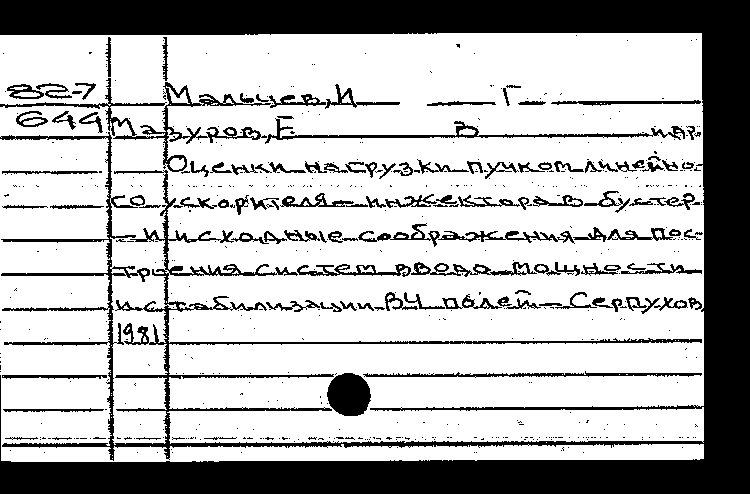 82-7 Мальцев, И Г
644 Мазуров, Е В и др.
Оценки нагрузки пучком линейно-
го ускорителя – инжектора в бустер
– и исходные соображения для пос-
троения систем ввода мощности
и стабилизации ВЧ полей – Серпухов,
1981